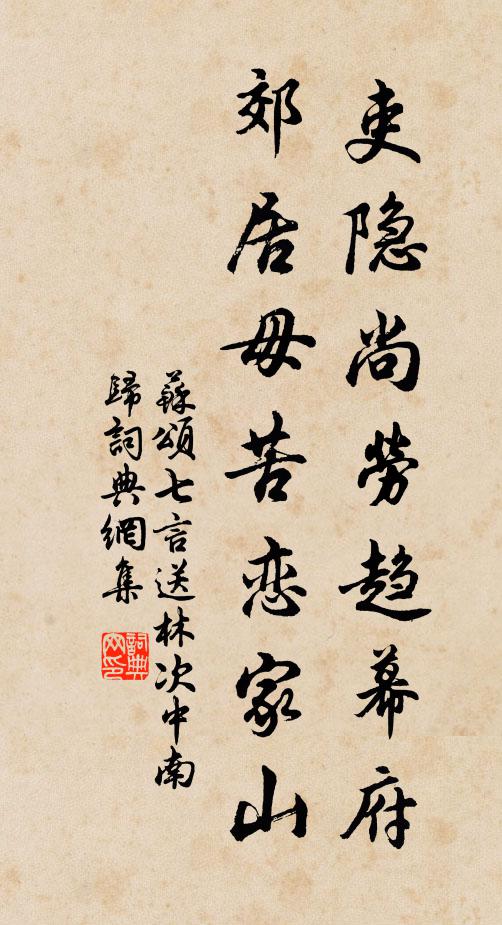 吏隐尚劳趋幕府
郊居毋苦恋家山
蘇頌七言送林次中南
歸詞典網集
詞典網印